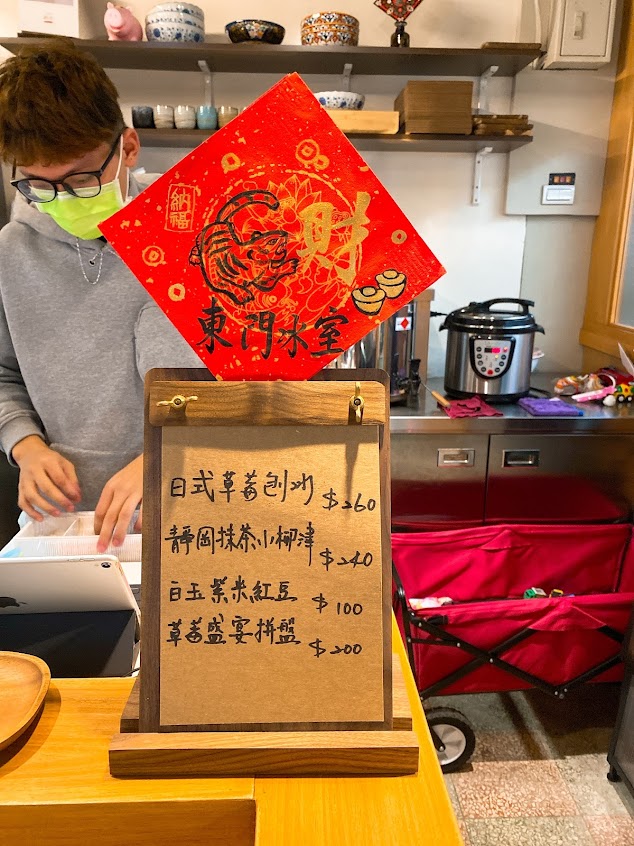 納福
財
東門冰室
日式草莓刨冰 $260
靜岡抹茶小柳津 $240
白玉紫米紅豆 $100
草莓盛宴拼盤 $200